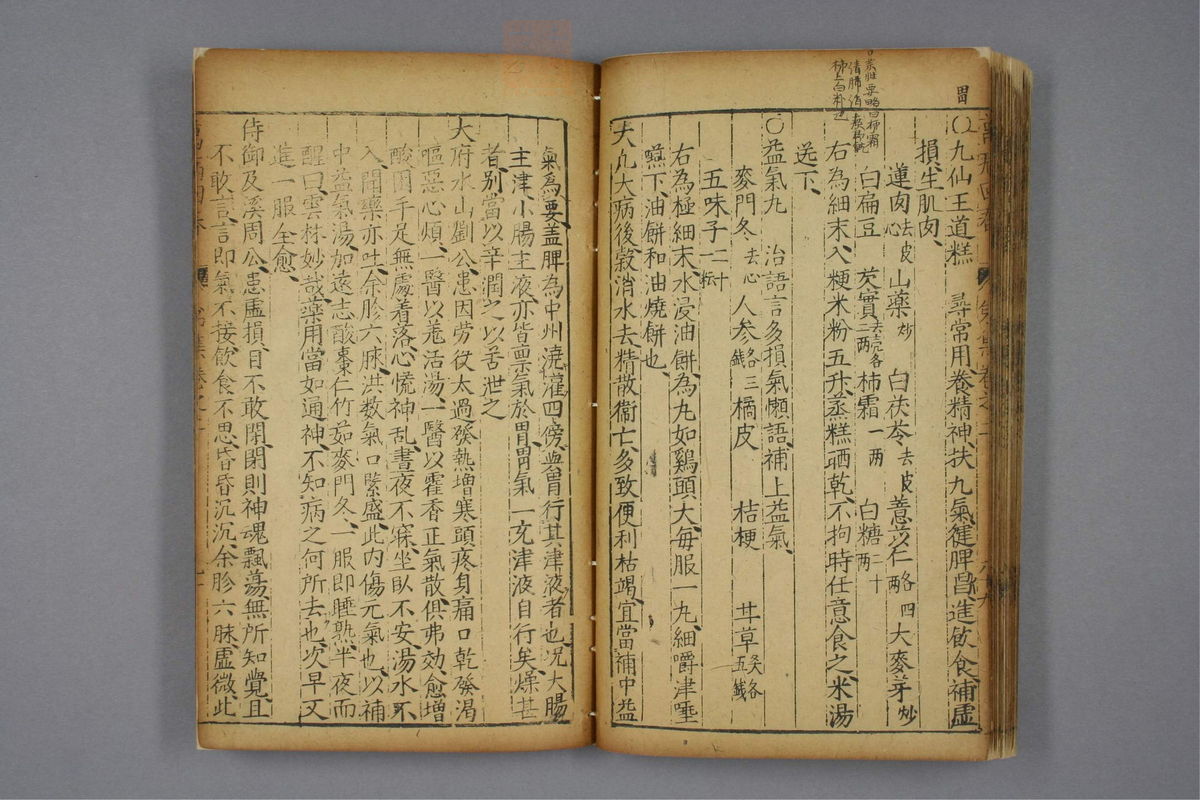 胃
〇九仙王道糕 尋常用養精神、扶九氣健脾胃、進飲食、補虛
損、生肌肉、
蓮肉去皮心 山藥炒 白茯苓去皮 薏苡仁各四兩 大麥芽炒
白扁豆 芡實去壳各二兩 柿霜一兩 白糖二十兩
右為細末、入粳米粉五升蒸糕晒乾、不拘時任意食之、米湯
送下、
〇益氣丸 治語言多損氣懶語、補上益氣、
麥門冬去心 人參各三錢 橘皮 桔梗 甘草炙各五錢
五味子二十粒
右為極細末、水浸油餅為丸如鷄頭大、每服一丸、細嚼津唾
嚥下、油餅和油燒餅也、
大凡大病後穀消水去、精散衞亡、多致便利枯竭、宜當補中益
氣為要、盖脾為中州、澆灌四傍、與胃行其津液者也、况大腸
主津、小腸主液、亦皆禀氣於胃、胃氣一充、津液自行矣、燥甚
者、別當以辛潤之、以苦泄之
大府水山劉公、患因劳役太過、發熱增寒、頭疼身痛、口乾發渴、
嘔惡心煩、一醫以羗活湯、一醫以霍香正氣散、俱弗効愈增
酸困、手足無處着落、心慌神乱、晝夜不寐、坐臥不安、湯水不
入、聞藥亦吐、余胗六脉洪数、氣口緊盛、此内傷元氣也、以補
中益氣湯、加遠志酸棗仁竹茹麥門冬、一服即睡熟、半夜而
醒曰、雲林妙哉、藥用當如通神、不知病之何所去也、次早又
進一服全愈
侍御及溪周公、患虛損、目不敢閉、閉則神魂飄蕩、無所知覺、且
不敢言、言即氣不接、飲食不思、昏昏沉沉、余胗六脉虛微、此